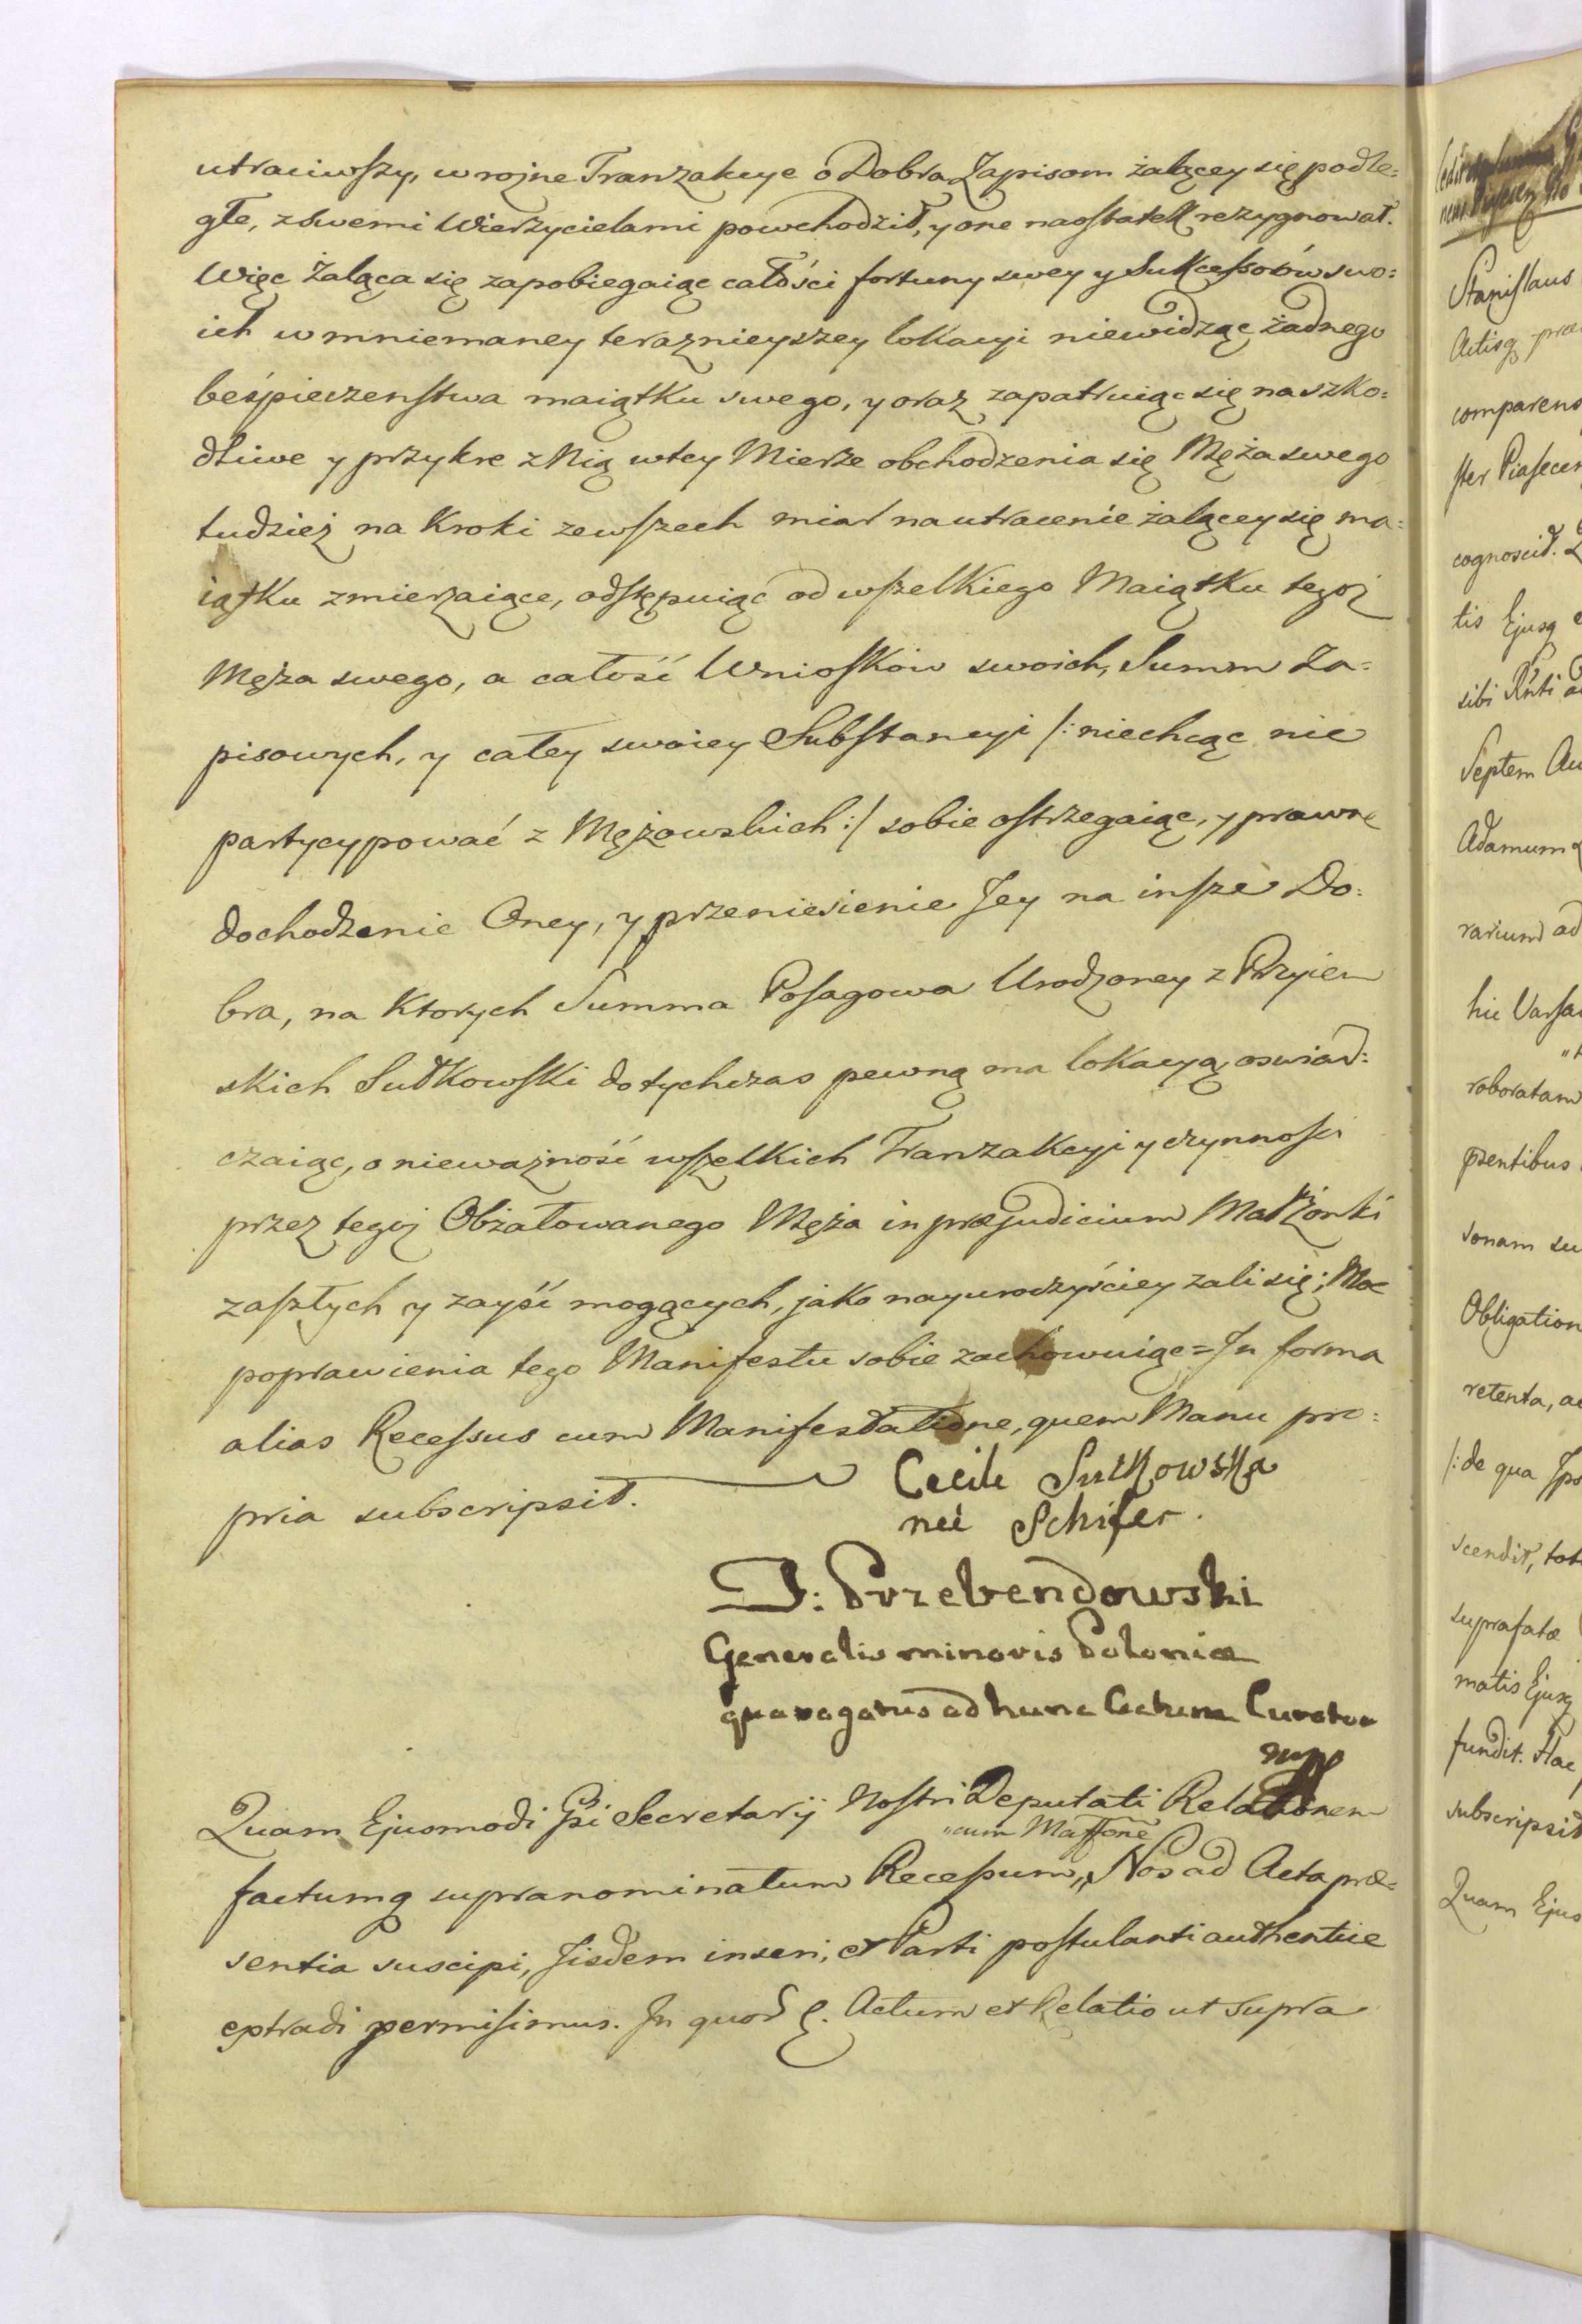 utraciwszy, w rożne Tranzakcye o Dobra Zapisom żalącey się podle:
głe, z swemi Wierzycielami powchodził, y one naostatek rezygnował.
Więc żaląca się zapobiegaiąc całości fortuny swey y Sukcessorów swo:
ich w mniemaney teraznieyszey lokacyi niewidząc żadnego
beśpieczenstwa maiątku swego, y oraz zapatruiąc się na szko:
dliwe y przykre z Nią w tey Mierze obchodzenia się Męża swego
tudzież na Kroki zewszech miar na utracenie żalącey się ma:
iątku zmierzaiące, odstępuiąc od wszelkiego Maiątku tegoż
Męża swego, a całość Wniosków swoich, Summ Za:
pisowych, y całey swoiey Substancyi /: niechcąc nic
partycypować z Mężowskich :/ sobie ostrzegaiąc, y prawne
dochodzenie Oney, y przeniesienie Jey na insze Do:
bra, na Ktorych Summa Posagowa Urodzoney z Przyiem
skich Sułkowski dotychczas pewną ma lokacyą, oswiad:
czaiąc, o nieważność wszelkich Tranzakcyi y czynnosci
przez tegoż Obżałowanego Męża in præjudicium Małżonki
zaszłych y zayść mogących, jako nayuroczyściey żali się; Moc
poprawienia tego Manifestu sobie zachowuiąc = In forma
alias Recessus cum Manifestatione, quem Manu pro:
pria subscripsit.
Cecile Sułkowska
neé Schifer.
J: Przebendowski
Generalis minoris Poloniæ
qua rogatus ad hunc Actum Curator
mpp
Quam Ejusmodi Psi Secretarij Nostri Deputati Relationem
„cum Maffone
factumq supranominatum Recessum,, Nos ad Acta præ:
sentia suscipi, Iisdem inseri, et Parti postulanti authentice
extradi permisimus. In quor ę. Actum et Relatio ut supra
Stanislaus
Actisq præ
comparens
ster Piasecen
cognoscit.
tis Ejusq
sibi Rnti
Septem Au
Adamum
rarium ad
hic Varsa
roboratam
psentibus
sonam su
Obligation
retenta, ac
/: de qua Ips
scendit, tot
suprafatæ
matis Ejusq
fundit. Hac
subscripsit
Quam Ejus